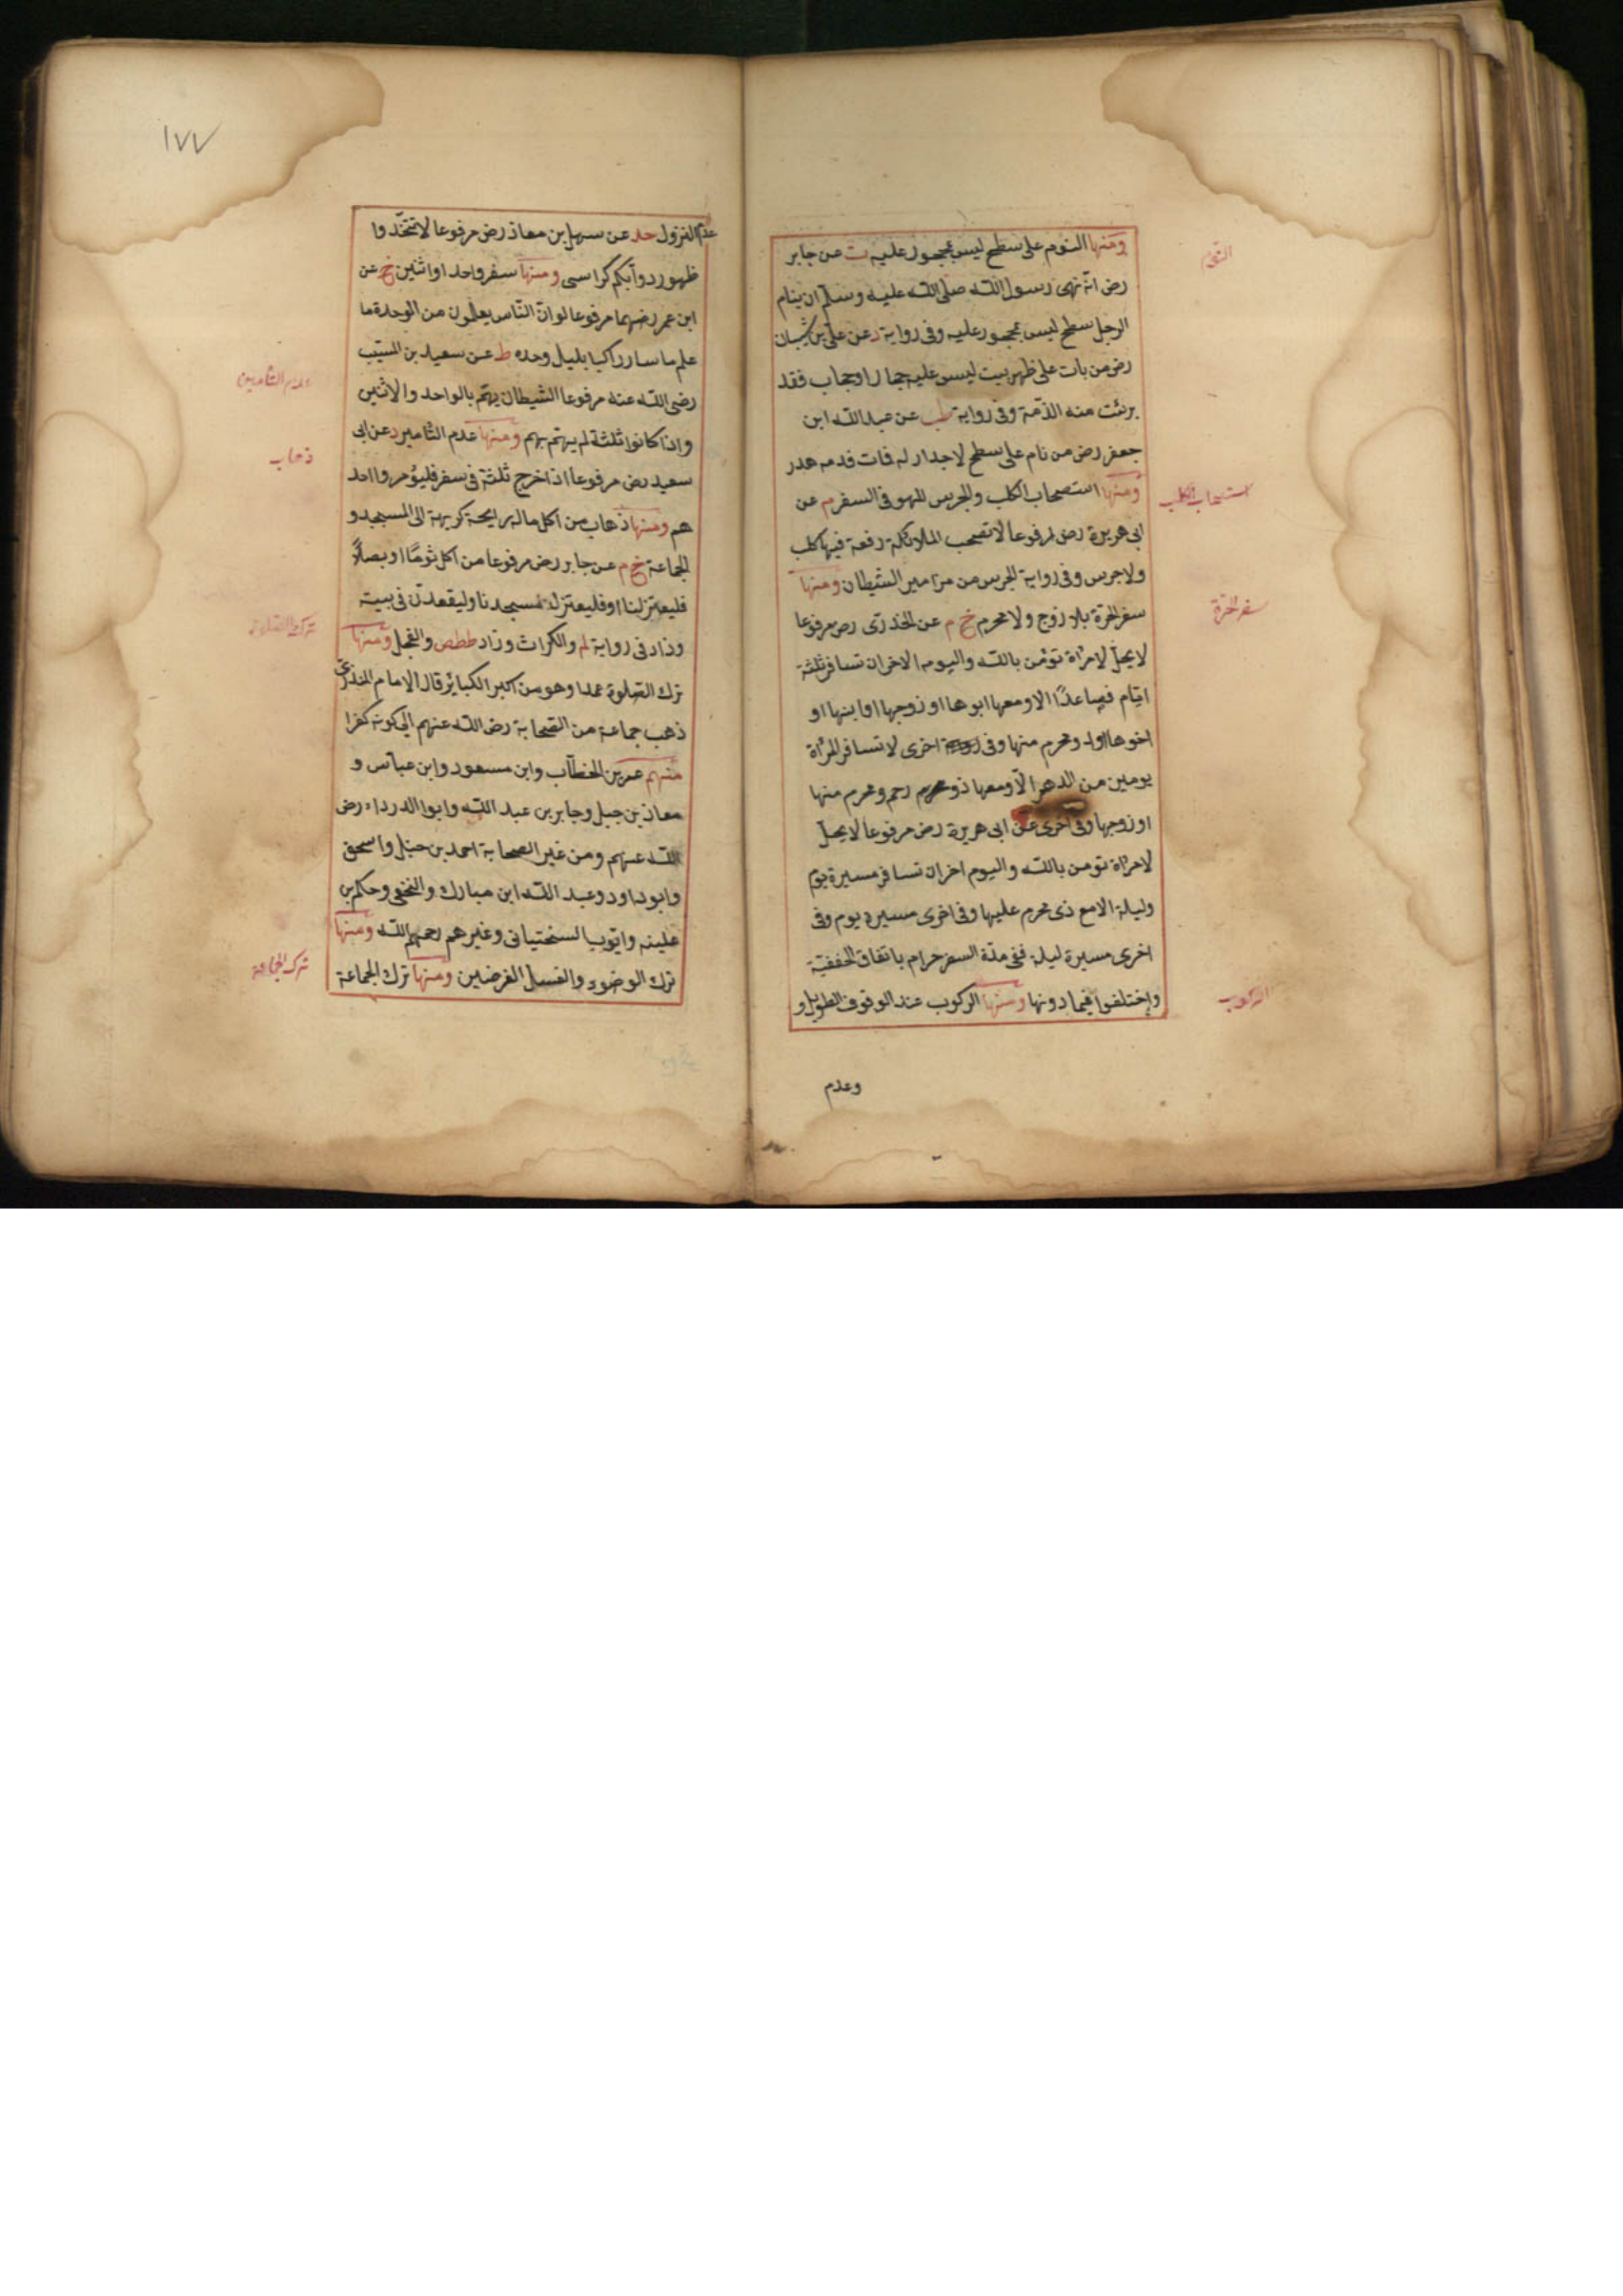 ومنها النوم على سطح ليس بمحجور عليه ت عن جابر
رض انه نهى رسول الله صلى الله عليه وسلم ان ينام
الرجل سطح ليس بمحجور عليه وفى رواية د عن على بن شيبان
رض من بات على ظهر بيت ليس عليه حجار او حجاب فقد
برئت منه الذمة وفى رواية طب عن عبد الله ابن
جعفر رض من نام على سطح لا جدار له فمات فدمه هدر
ومنها استصحاب الكلب والجرس للهو فى السفر م عن
ابى هريرة رض مرفوعا لا تصحب الملائكة رفقة فيها كلب
ولا جرس وفى رواية الجرس من مزامير الشيطان ومنها
سفر الحرة بلا زوج ولا محرم خ م عن الخدرى رض مرفوعا
لا يحل لامرأة تؤمن بالله واليوم الاخر ان تسافر ثلثة
ايام فصاعدًا الا ومعها ابوها او زوجها او ابنها او
اخوها او ذو محرم منها وفى اخرى لا تسافر المرأة
يومين من الدهر الا ومعها ذو محرم رحم ومحرم منها
او زوجها وفى اخرى عن ابى هريرة رض مرفوعا لا يحل
لامرأة تومن بالله واليوم اخر ان تسافر مسيرة يوم
وليلة الا مع ذى محرم عليها وفى اخرى مسيرة يوم وفى
اخرى مسيرة ليلة ففى مدة السفر حرام باتفاق الحنفية
واختلفوا فيما دونها ومنها الركوب عند الوقوف الطويل و
وعدم
النوم
استصحاب الكلب
سفر الحرة
الركوب
١٧٧
عدم النزول حد عن سهل بن معاذ رض مرفوعا لا تتخذوا
ظهور دوابكم كراسى ومنها سفر واحد او اثنين خ عن
ابن عمر رضهما مرفوعا لو ان الناس يعلمون من الوحدة ما
علم ما سار راكبا بليل وحده ط عن سعيد بن المسيب
رضى الله عنه مرفوعا الشيطان يهتم بالواحد والاثنين
واذا كانوا ثلثة لم يهتم بهم ومنها عدم التامير د عن ابى
سعيد رض مرفوعا اذا خرج ثلثة فى سفر فليؤمروا احد
هم ومنها ذهاب من اكل ماله رايحة كريهة الى المسجد و
الجماعة خ م عن جابر رض مرفوعا من اكل ثومًا او بصلًا
فليعتزلنا او فليعتزل مسجدنا وليقعدن فى بيته
وزاد فى رواية لم والكراث وزاد ططص والفجل ومنها
ترك الصلوة عمدا وهو من اكبر الكبائر قال الامام المنذرى
ذهب جماعة من الصحابة رض الله عنهم الى كونه كفرا
منهم عمر بن الخطاب وابن مسعود وابن عباس و
معاذ بن جبل وجابر بن عبد الله وابوا الدرداء رض
الله عنهم ومن غير الصحابة احمد بن حنبل واسحق
وابو داود وعبد الله ابن مبارك والنخعى وحكم بن
علينه وايوب السنختيانى وغيرهم رحمهم الله ومنها
ترك الوضوء والغسل الفرضين ومنها ترك الجماعة
عدم التامير
ذهاب
ترك الصلوة
ترك الجماعة